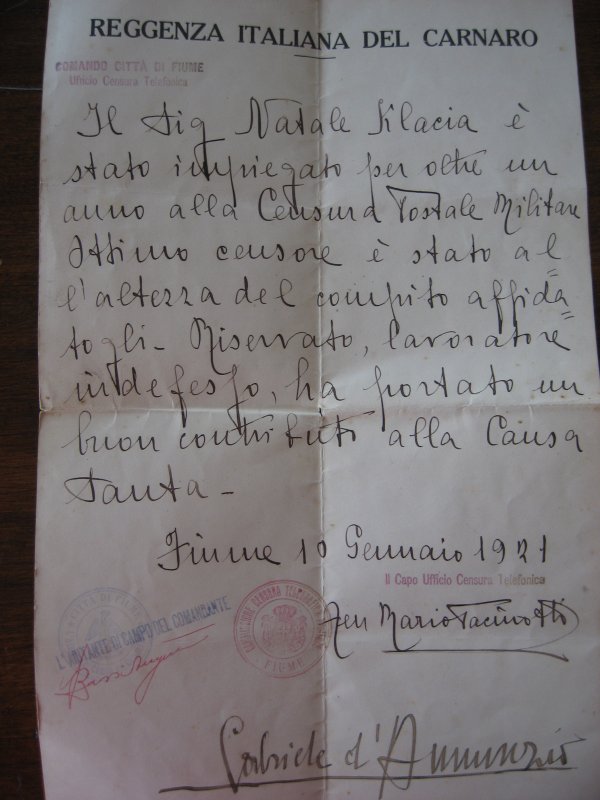 REGGENZA ITALIANA DEL CARNARO
COMANDO CITTÀ DI FIUME
Ufficio Censura Telefonica
Il Sig Natale Klacia è
stato impiegato per oltre un
anno alla Censura Postale Militare
Ottimo censore è stato al=
l'altezza del compito affida=
togli - Riservato, lavoratore
indefesso, ha portato un
buon contributo alla Causa
Santa -
Fiume 10 Gennaio 1921
Il Capo Ufficio Censura Telefonica
Ten Mario
L'AIUTANTE DI CAMPO DEL COMANDANTE
FIUME
Gabriele d'Annunzio